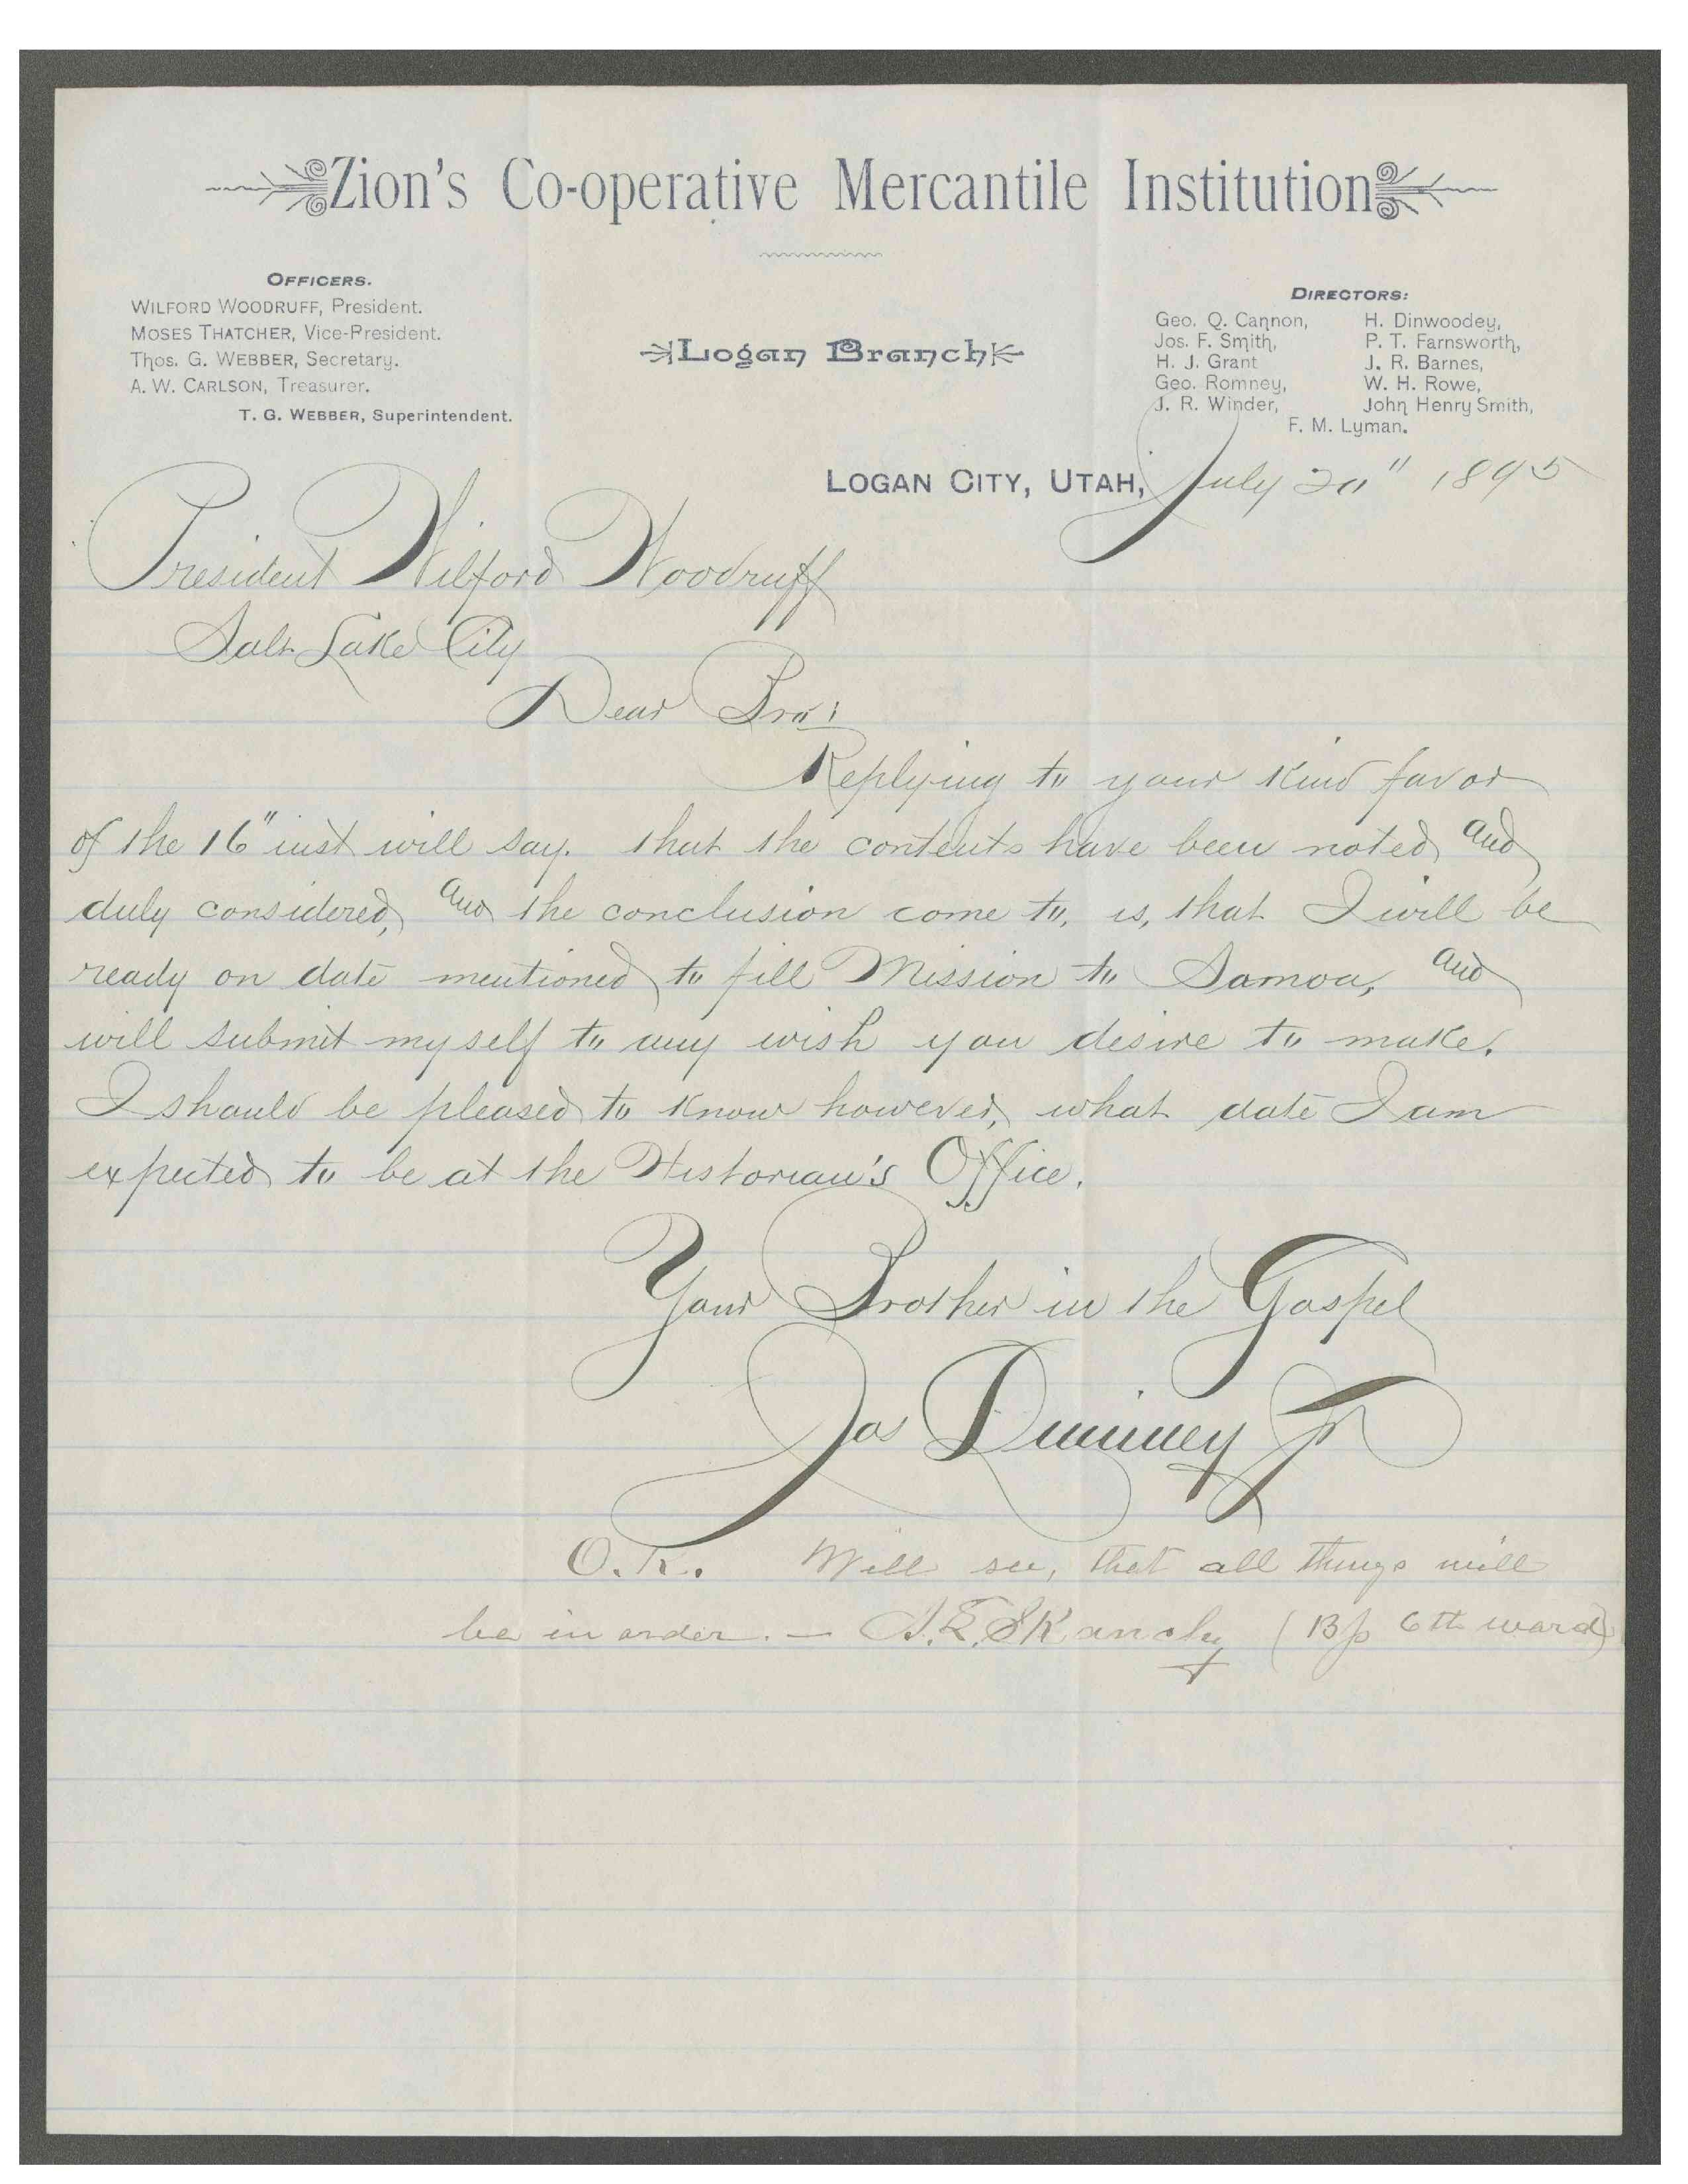 Zion's Co-operative Mercantile Institution
OFFICERS.
WILFORD WOODRUFF, President.
MOSES THATCHER, Vice-President.
Thos. G. WEBBER, Secretary.
A. W. CARLSON, Treasurer.
T. G. WEBBER, Superintendent.
Logan Branch
DIRECTORS:
Geo. Q. Cannon, H. Dinwoodey,
Jos. F. Smith, P. T. Farnsworth,
H. J. Grant J. R. Barnes,
Geo. Romney, W. H. Rowe,
J. R. Winder, John Henry Smith,
F. M. Lyman.
LOGAN CITY, UTAH, July 20" 1895
President Wilford Woodruff
Salt Lake City
Dear Bro:
Replying to your kind favor
of the 16" inst will say. that the contents have been noted and
duly considered, and the conclusion come to, is, that I will be
ready on date mentioned to fill Mission to Samoa, and
will submit myself to any wish you desire to make.
I should be pleased to know however, what date I am
expected to be at the Historian's Office.
Your Brother in the Gospel
Jas Jr
O.K. Will see, that all things will
be in order. — Skanchy (Bp 6th ward)